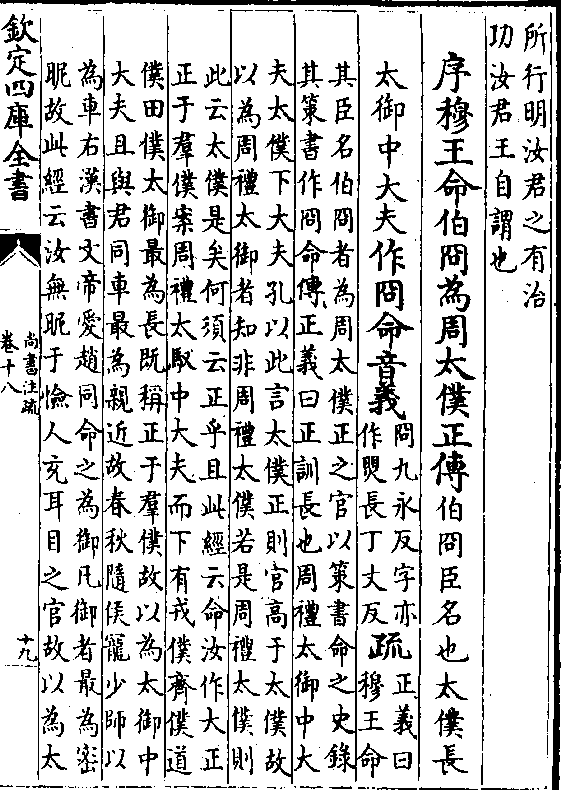 所行明汝君之有治
功汝君王自謂也
序穆王命伯冏為周太僕正傳伯冏臣名也太僕長
太御中大夫作冏命音義冏九永反字亦
作臩長丁丈反疏正義曰
穆王命
其臣名伯冏者為周太僕正之官以策書命之史錄
其策書作冏命傳正義曰正訓長也周禮太御中大
夫太僕下大夫孔以此言太僕正則官高于太僕故
以為周禮太御者知非周禮太僕若是周禮太僕則
此云太僕是矣何須云正乎且此經云命汝作大正
正于羣僕案周禮太馭中大夫而下有戎僕齊僕道
僕田僕太御最為長既稱正于羣僕故以為太御中
大夫且與君同車最為親近故春秋隨侯寵少師以
為車右漢書文帝愛趙同命之為御凡御者最為密
昵故此經云汝無昵于憸人充耳目之官故以為太
欽定四庫全書
尚書注疏
卷十八
十九